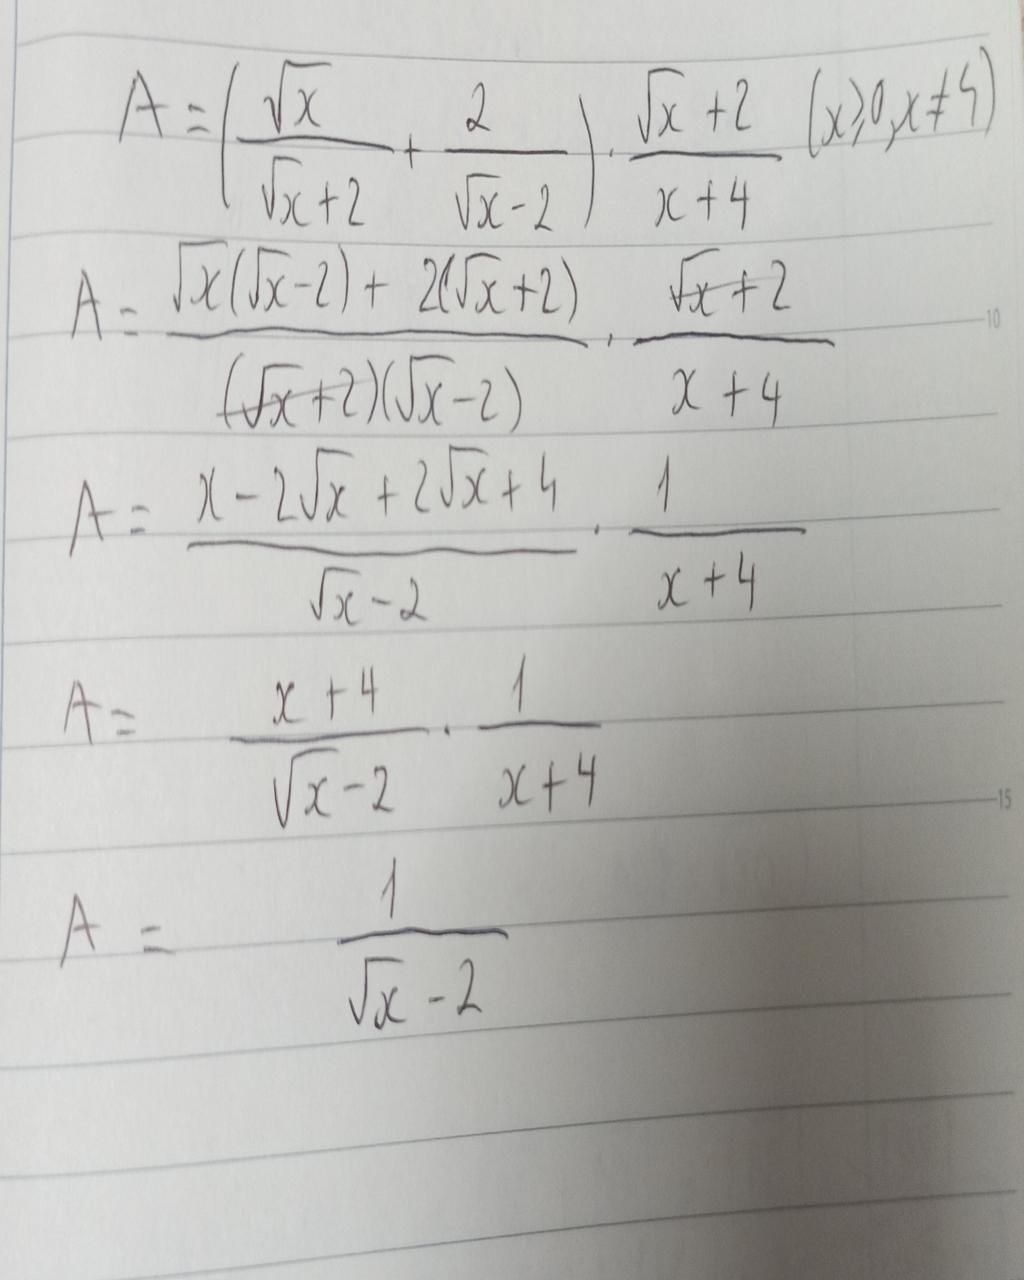 A = (√x/(√x+2) + 2/(√x-2)) · (√x+2)/(x+4) (x⩾0, x≠4)
A = (√x(√x-2) + 2(√x+2))/((√x+2)(√x-2)) · (√x+2)/(x+4)
10
A = (x-2√x+2√x+4)/(√x-2) · 1/(x+4)
A = (x+4)/(√x-2) · 1/(x+4)
15
A = 1/(√x-2)